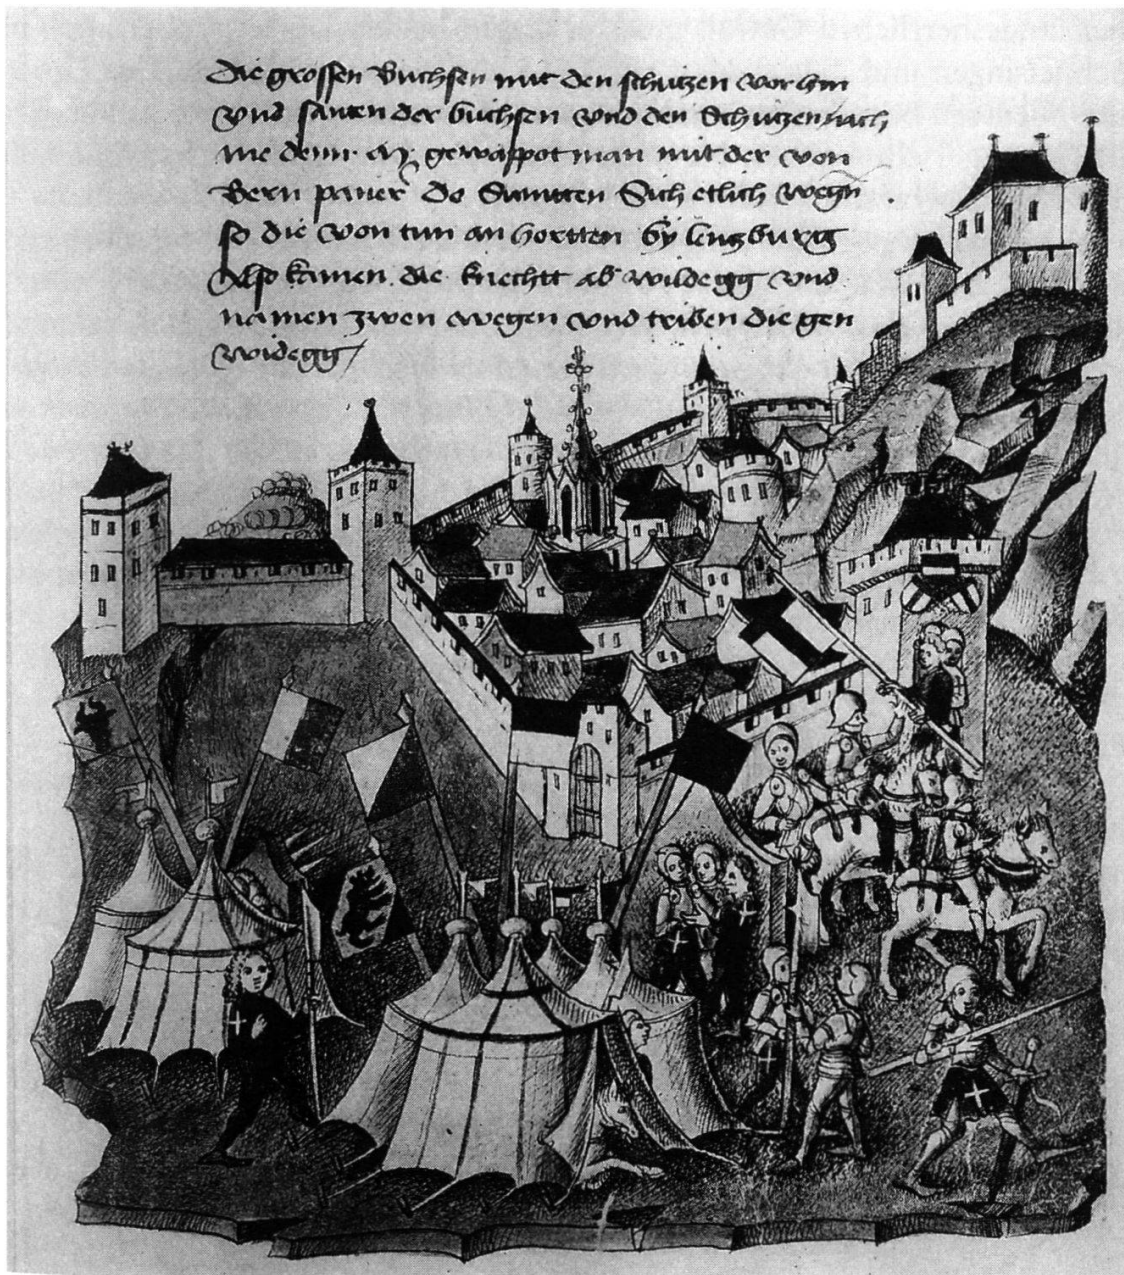 die grossen Buchsen mit den schutzen vorhin
vnd santen der buchsen vnd den Schutzen nach
me denn gewappot man mit der von
Bern paner do Sumtten Sich etlich wegn
so die von tun an hortten by lentzburg
Also kamen die knechtt ab wildegg vnd
namen zwen wegen vnd triben die gen
widegg